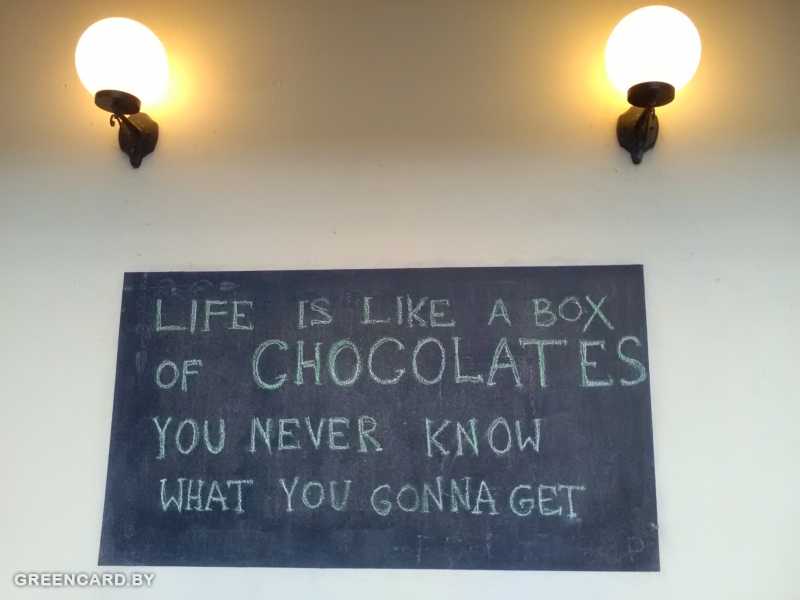 LIFE IS LIKE A BOX
OF CHOCOLATES
YOU NEVER KNOW
WHAT YOU GONNA GET
GREENCARD.BY